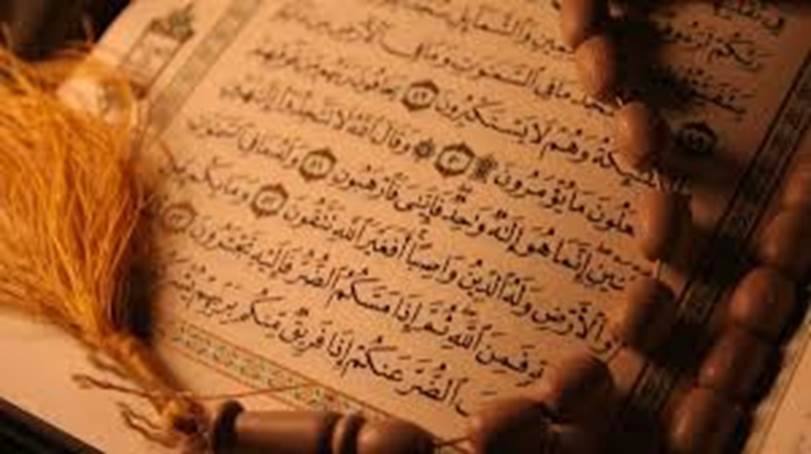 وَالشَّمَآئِلِ
يَسْجُدُ مَا فِي السَّمَٰوَٰتِ وَمَا فِي الْأَرْضِ
وَهُمْ لَا يَسْتَكْبِرُونَ ٤٩ يَخَافُونَ رَبَّهُم مِّن فَوْقِهِمْ
مَا يُؤْمَرُونَ ۩ ٥٠ ۞ وَقَالَ اللَّهُ لَا تَتَّخِذُوا إِلَٰهَيْنِ
إِنَّمَا هُوَ إِلَٰهٌ وَٰحِدٌ فَإِيَّٰيَ فَارْهَبُونِ ٥١ وَلَهُ مَا فِي السَّمَٰوَٰتِ
وَالْأَرْضِ وَلَهُ الدِّينُ وَاصِبًا أَفَغَيْرَ اللَّهِ تَتَّقُونَ ٥٢ وَمَا بِكُم
فَمِنَ اللَّهِ ثُمَّ إِذَا مَسَّكُمُ الضُّرُّ فَإِلَيْهِ تَجْـَٔرُونَ ٥٣
الضُّرَّ عَنكُمْ إِذَا فَرِيقٌ مِّنكُم بِرَبِّهِمْ